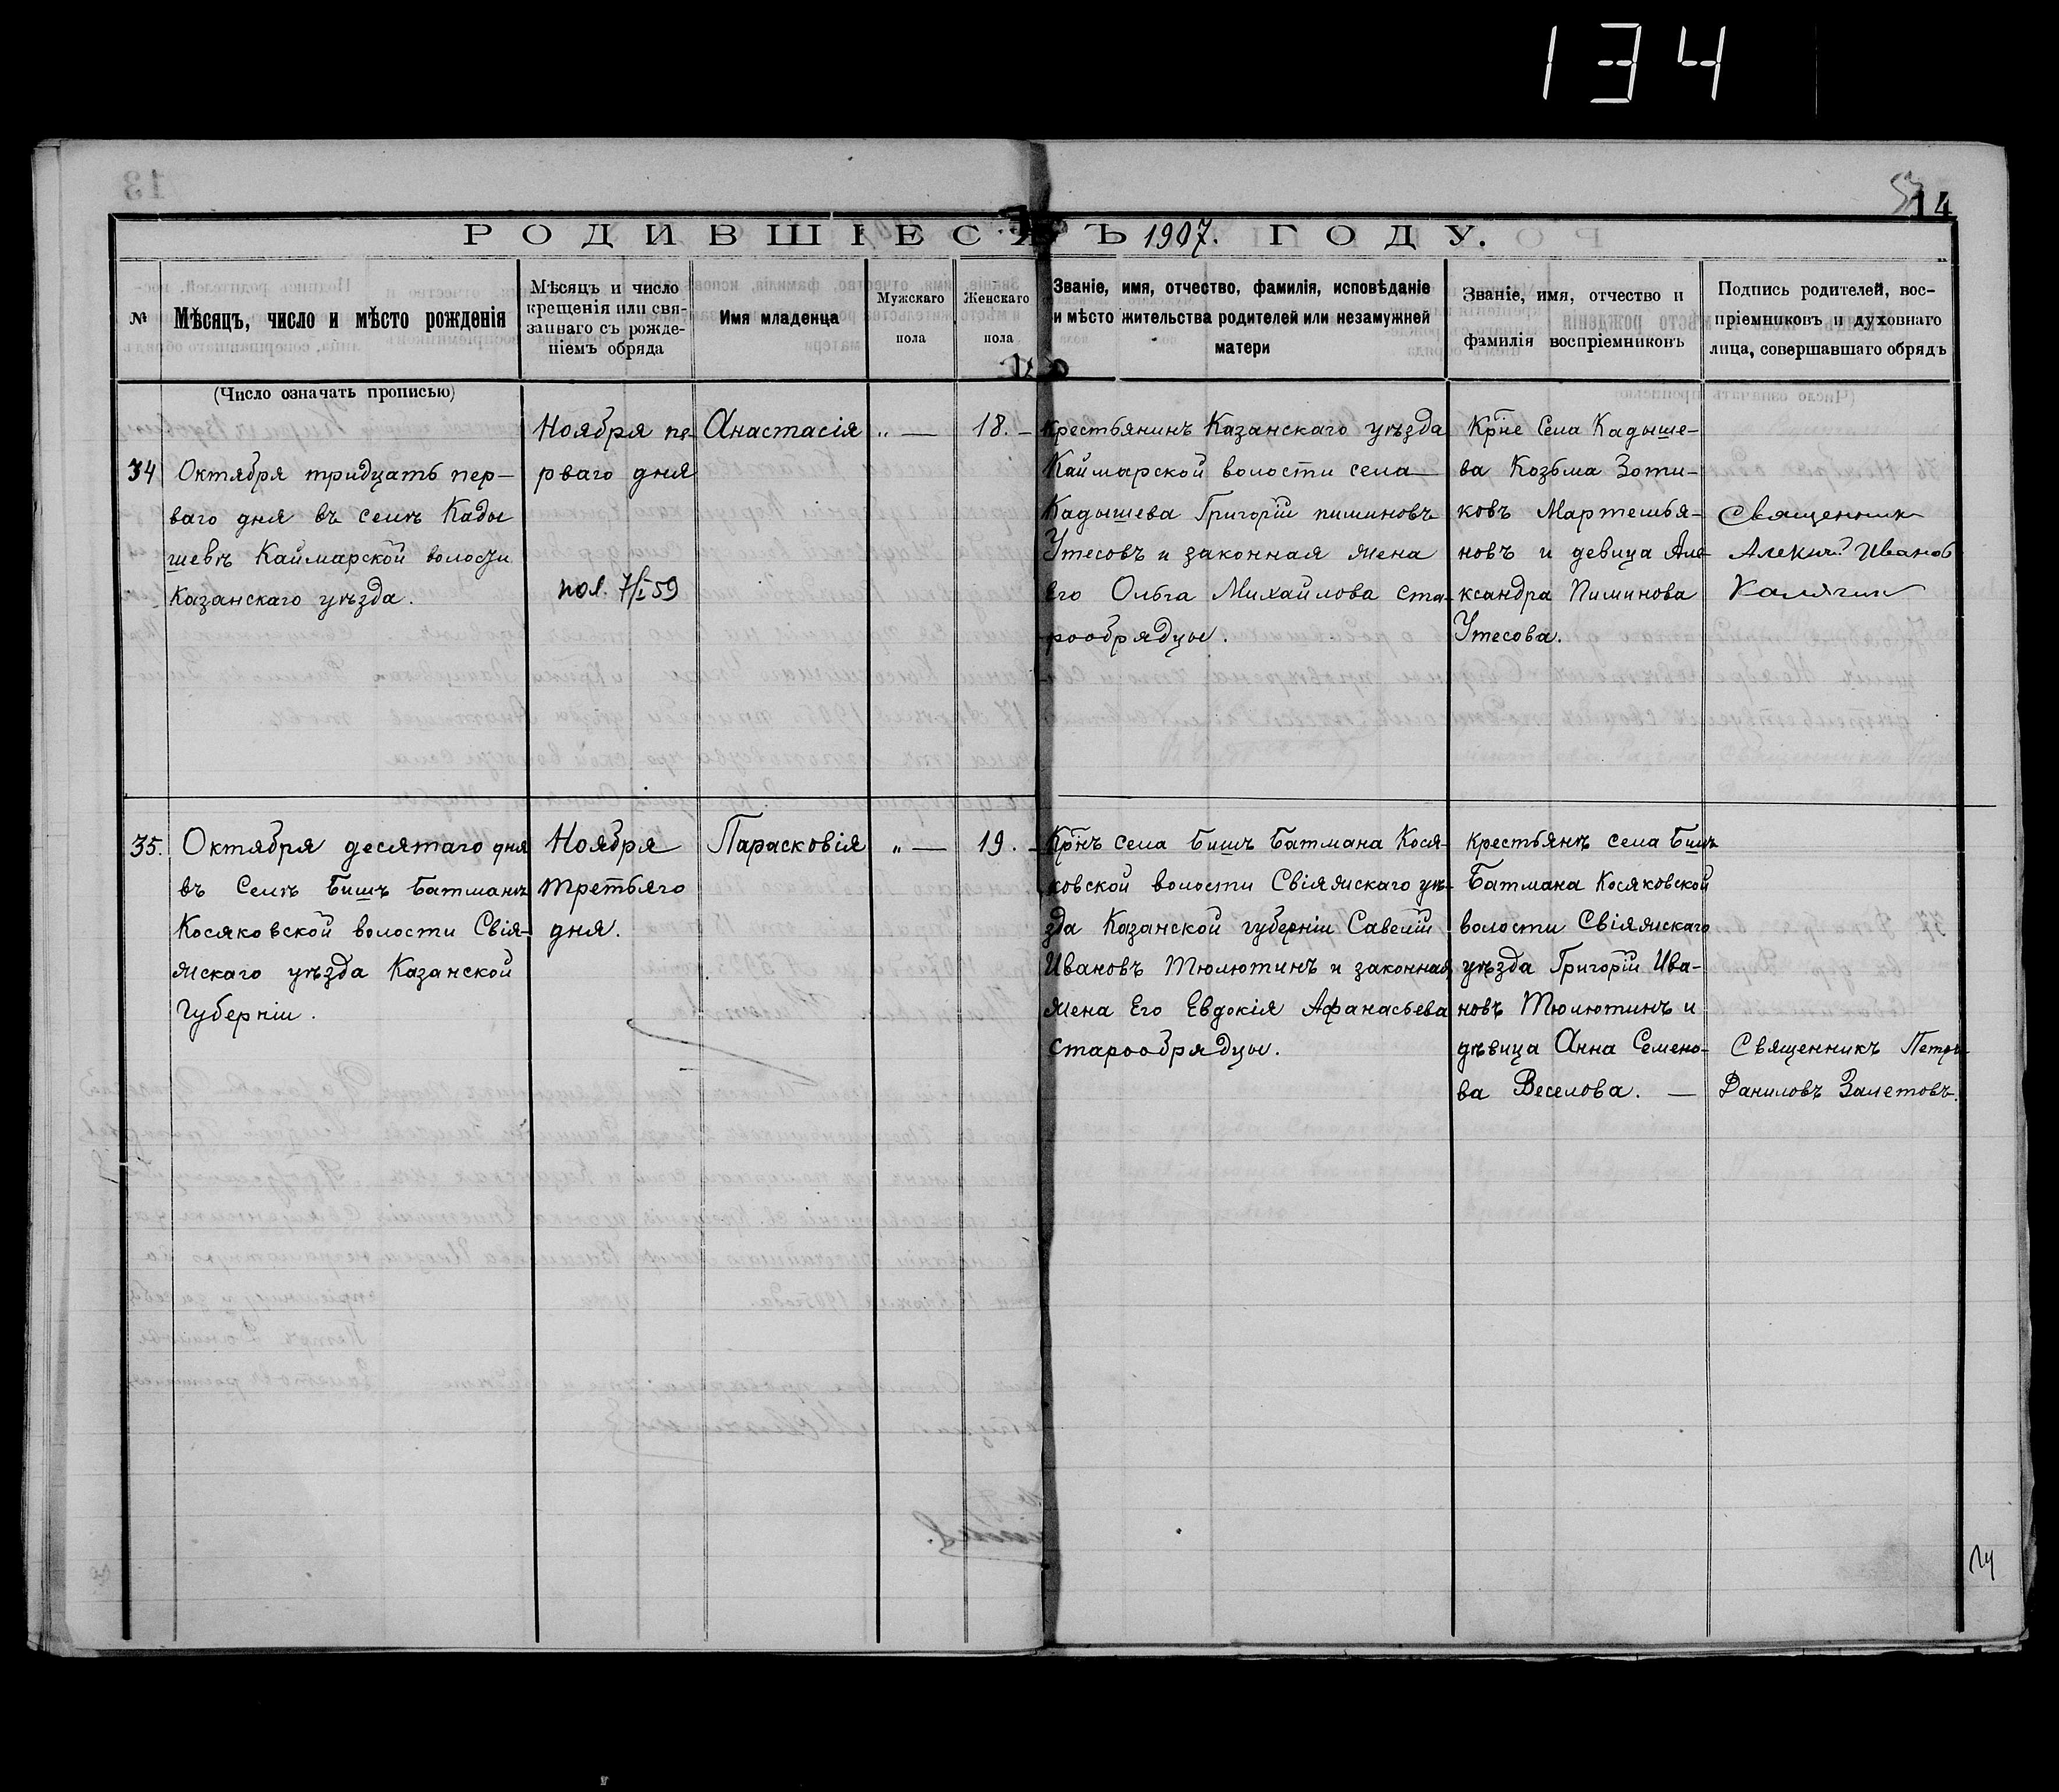 134
13
14
РОДИВШІЕСЯ ВЪ 1907. ГОДУ.
№
Мѣсяцъ, число и мѣсто рожденія
Мѣсяцъ и число
крещенія или свя-
заннаго съ рожде-
ніемъ обряда
Имя младенца
Мужскаго
пола
Женскаго
пола
Званіе, имя, отчество, фамилія, исповѣданіе
и мѣсто жительства родителей или незамужней
матери
Званіе, имя, отчество и
фамилія воспріемниковъ
Подпись родителей, вос-
пріемниковъ и духовнаго
лица, совершавшаго обрядъ
(Число означать прописью)
34
Октября тридцать пер-
ваго дня въ селѣ Кады
шевѣ Каймарской волости
Казанскаго уѣзда.
Ноября пе-
рваго дня
пол. 7/I 59
Анастасія
„ —
18. –
Крестьянинъ Казанскаго уѣзда
Каймарской волости села
Кадышева Григорій пиминовъ
Утесовъ и законная жена
его Ольга Михайлова ста-
рообрядцы.
Крне Села Кадыше-
ва Козьма Зоти-
ковъ Мартемья-
новъ и девица Але-
ксандра Пиминова
Утесова.
Священник
Иванов
Калягин
35.
Октября десятаго дня
въ Селѣ Бишъ Батманѣ
Косяковской волости Свія-
жскаго уѣзда Казанской
Губерніи.
Ноября
третьяго
дня.
Парасковія
„ —
19. –
Крнъ села Бишъ Батмана Кося-
ковской волости Свіяжскаго уѣ-
зда Казанской губерніи Савелій
Ивановъ Тюлютинъ и законная
жена Его Евдокія Афанасьева
Старообрядцы.
крестьянѣ села Бишъ
Батмана Косяковской
волости Свіяжскаго
уѣзда Григорій Ива-
новъ Тюлютинъ и
дѣвица Анна Семено-
ва Веселова. —
Священникъ Петръ
Даниловъ Залетовъ.
14